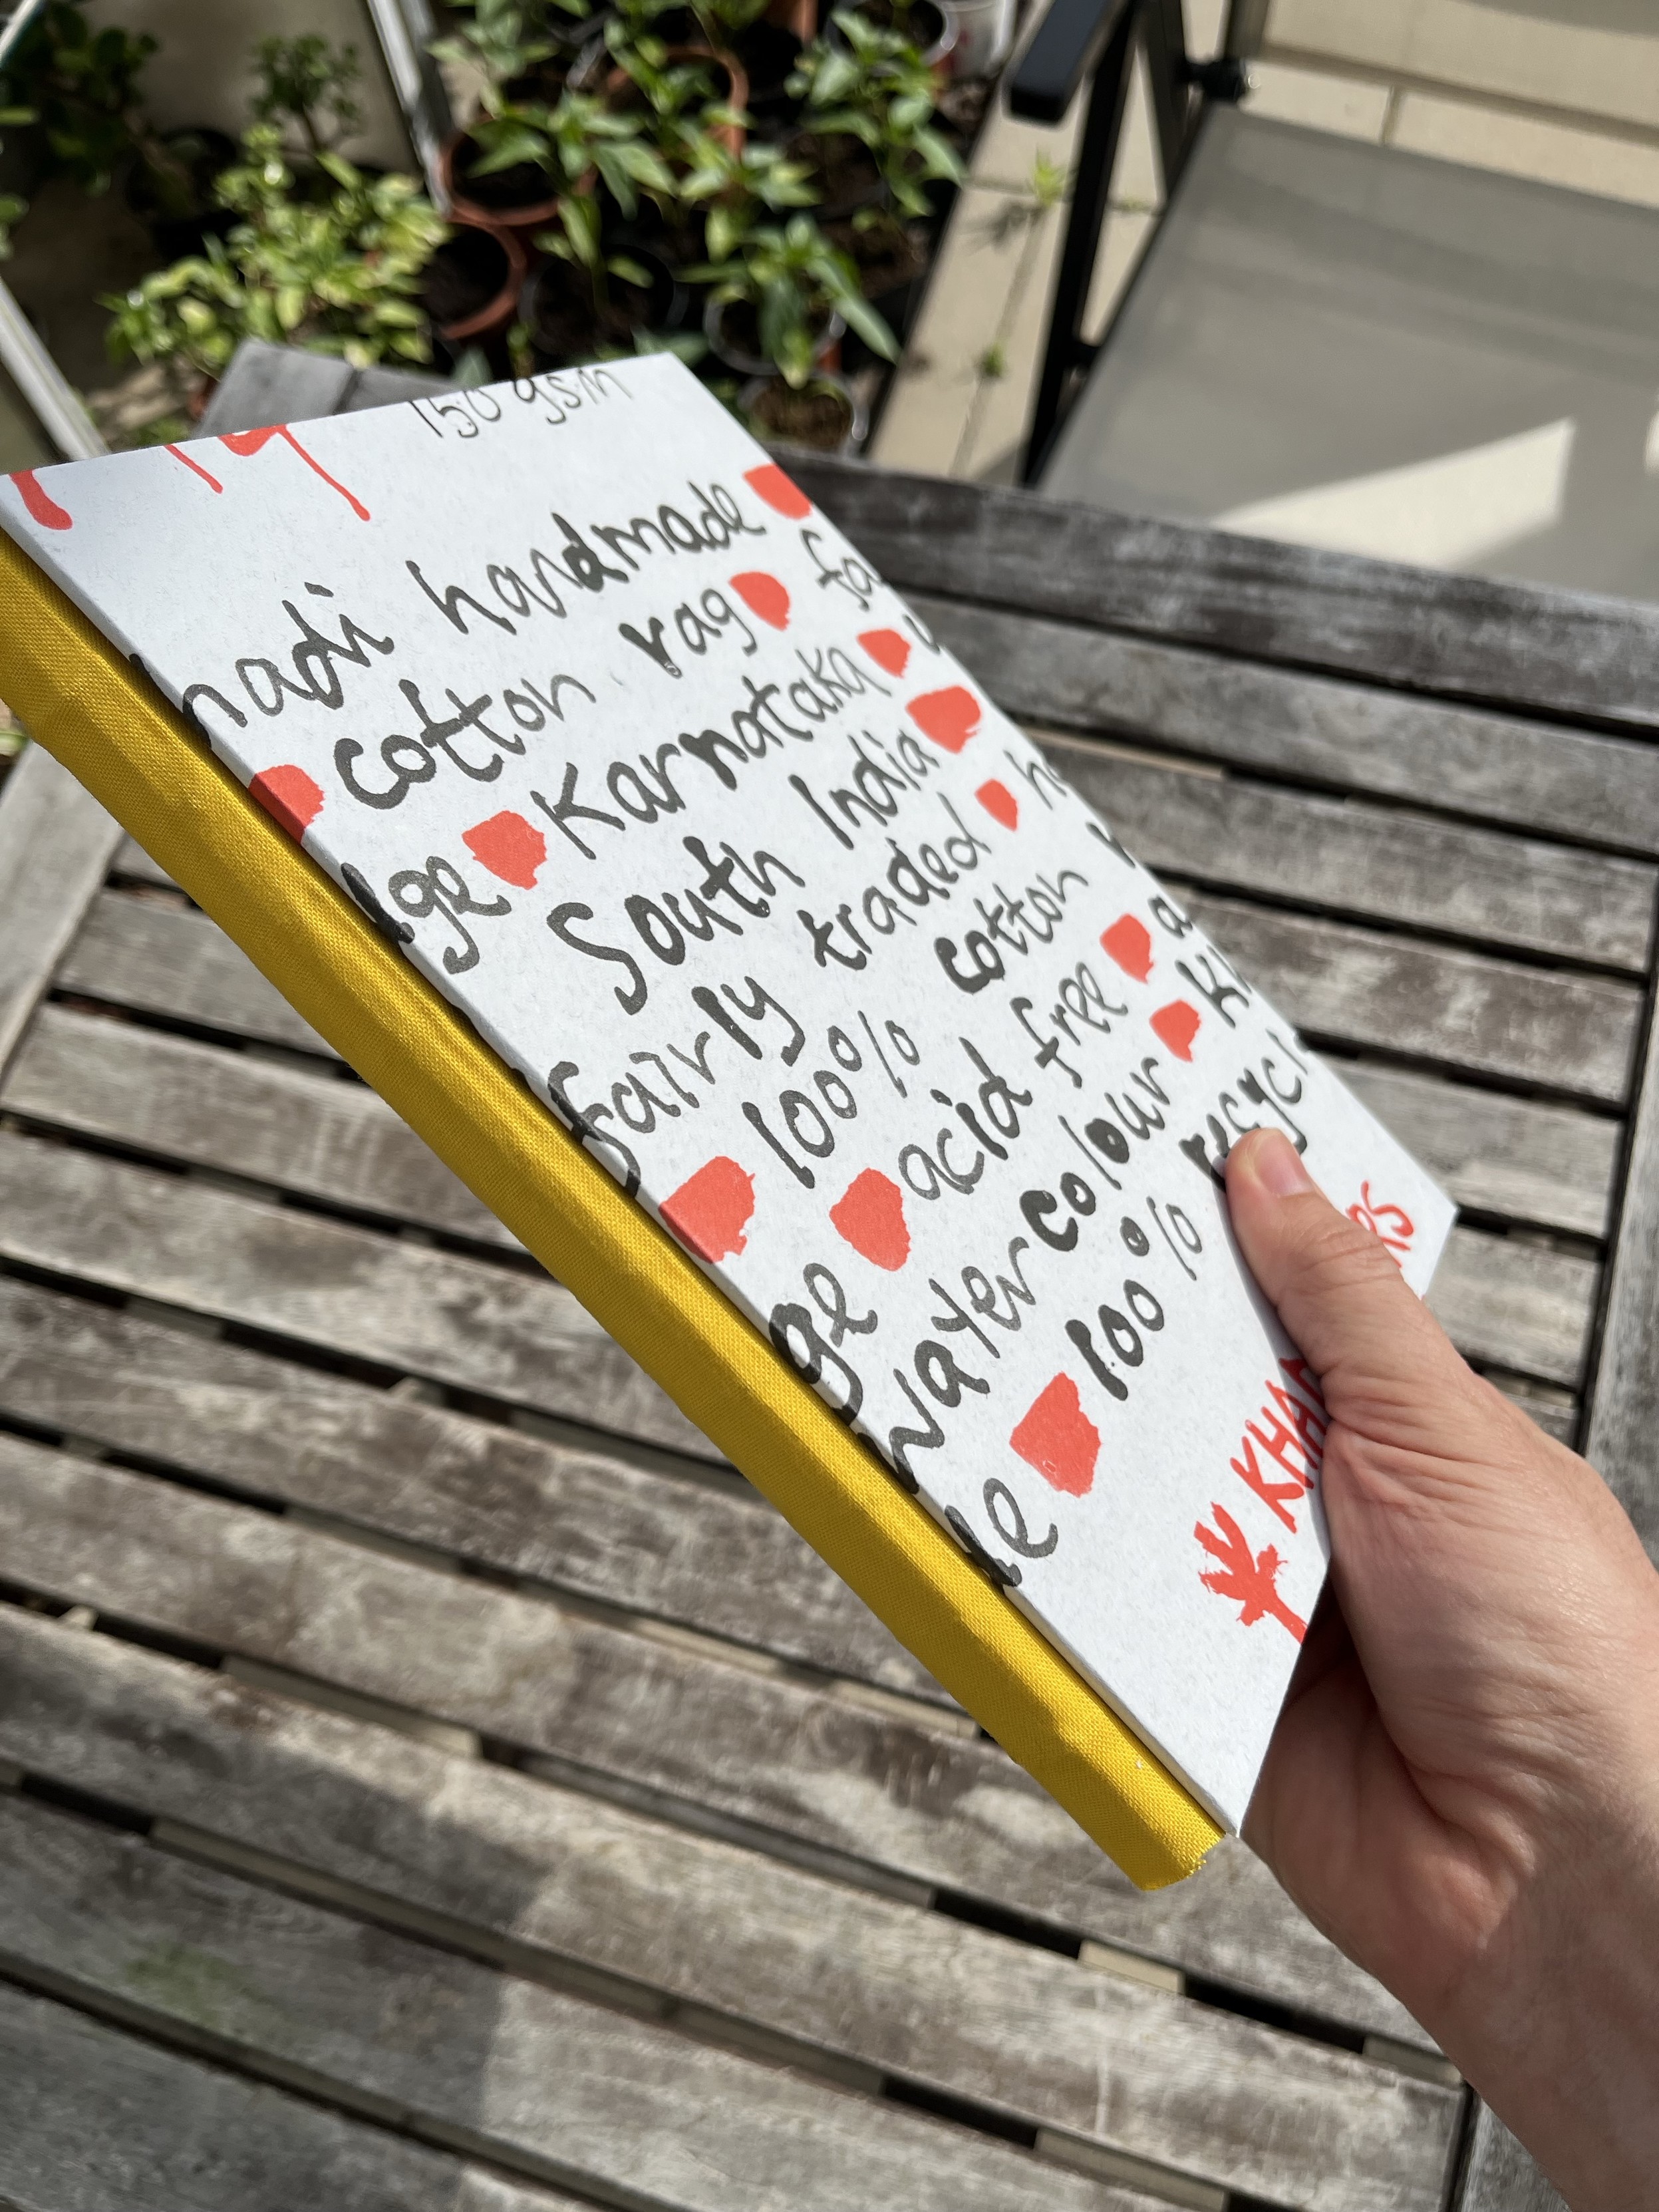 150 gsm
hadi handmade
cotton rag fa
ge Karnataka
South India
fairly traded
100% cotton
ge acid free
watercolour
100% recycl
KHA